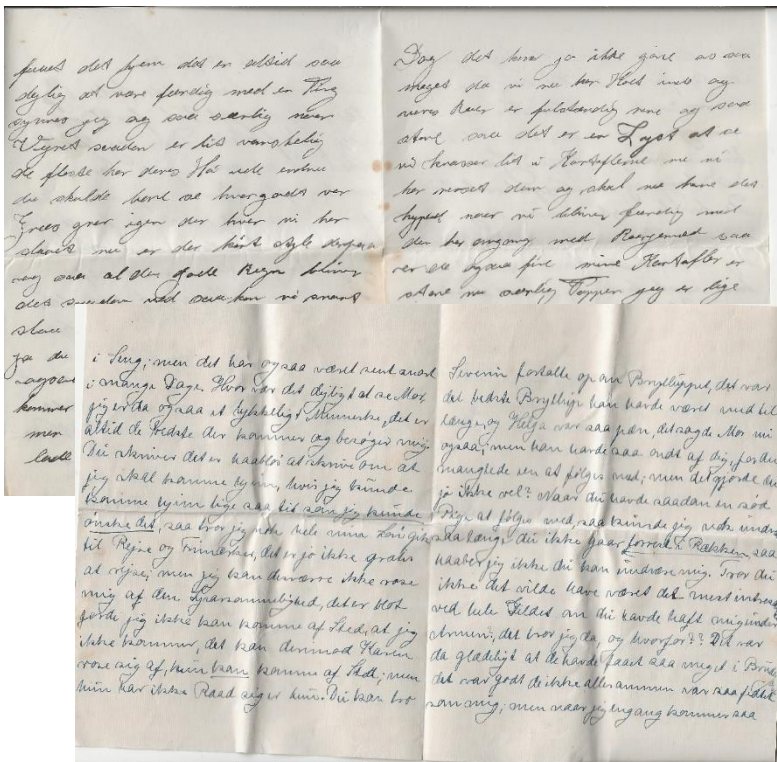 faaet det hjem det er altid saa
dejlig at være færdig med en Ting
synnes jeg og saa særlig naar
Vejret saadan er lit vanskelig
de fleste har deres Hø ude endnu
du skulde bare se hvor godt vor
Græs gror igen der hvor vi har
slaaet nu er der kørt ajle derpaa
og saa al den gode Regn bliver
det saadan ved saa kan vi snart
slaa
ja du
ogsaa
kommer
men
lade
Dag det kan jo ikke gøre os saa
meget da vi nu har Høet inde og
vores Roer er fuldstændig rene og saa
store saa det er en Lyst at se
vi krasser lit i Kartoflerne nu vi
har renset dem og skal nu have det
hyppet naar vi bliver færdig med
den her omgang med saa
er de ogsaa fine mine Kartofler er
store nu særlig Toppen jeg er lige
i Seng; men det har ogsaa været sent snart
i mange Dage. Hvor var det dejligt at se Mor,
jeg er da ogsaa et lykkeligt Menneske, det er
altid de Bedste der kommer og besøger mig.
Du skriver det er haabløs at skrive om at
jeg skal komme hjem, hvis jeg kunde
komme hjem lige saa tit som jeg kunde
ønske det, saa tror jeg nok hele min Løn gik
til Rejse og Frimærker, det er jo ikke gratis
at rejse; men jeg kan desværre ikke rose
mig af den Sparsommelighed, det er blot
fordi jeg ikke kan komme af Sted, at jeg
ikke kommer, det kan derimod Karen
rose sig af, hun kan komme af Sted; men
hun har ikke Raad siger hun. Du kan tro
Severin fortalte op om Brylluppet, det var
det bedste Bryllup han havde været med til
længe, og Helga var saa pæn, det sagde Mor nu
ogsaa; men han havde saa ondt af dig, for du
manglede en at følges med; men det gjorde du
jo ikke vel? Naar du havde saadan en sød
Pige at følges med, saa kunde jeg nok undvæ
saalænge du ikke gaar forrest i Rækken, saa
haaber jeg ikke du kan undvære mig. Tror du
ikke det vilde have været det mest intres
ved hele Gildet om du havde haft mig under
Armen; det tror jeg da, og hvorfor?? Det var
da glædeligt at de havde faaet saa meget i Brude
det var godt de ikke allesammen var saa fattig
som mig; men naar jeg engang kommer saa